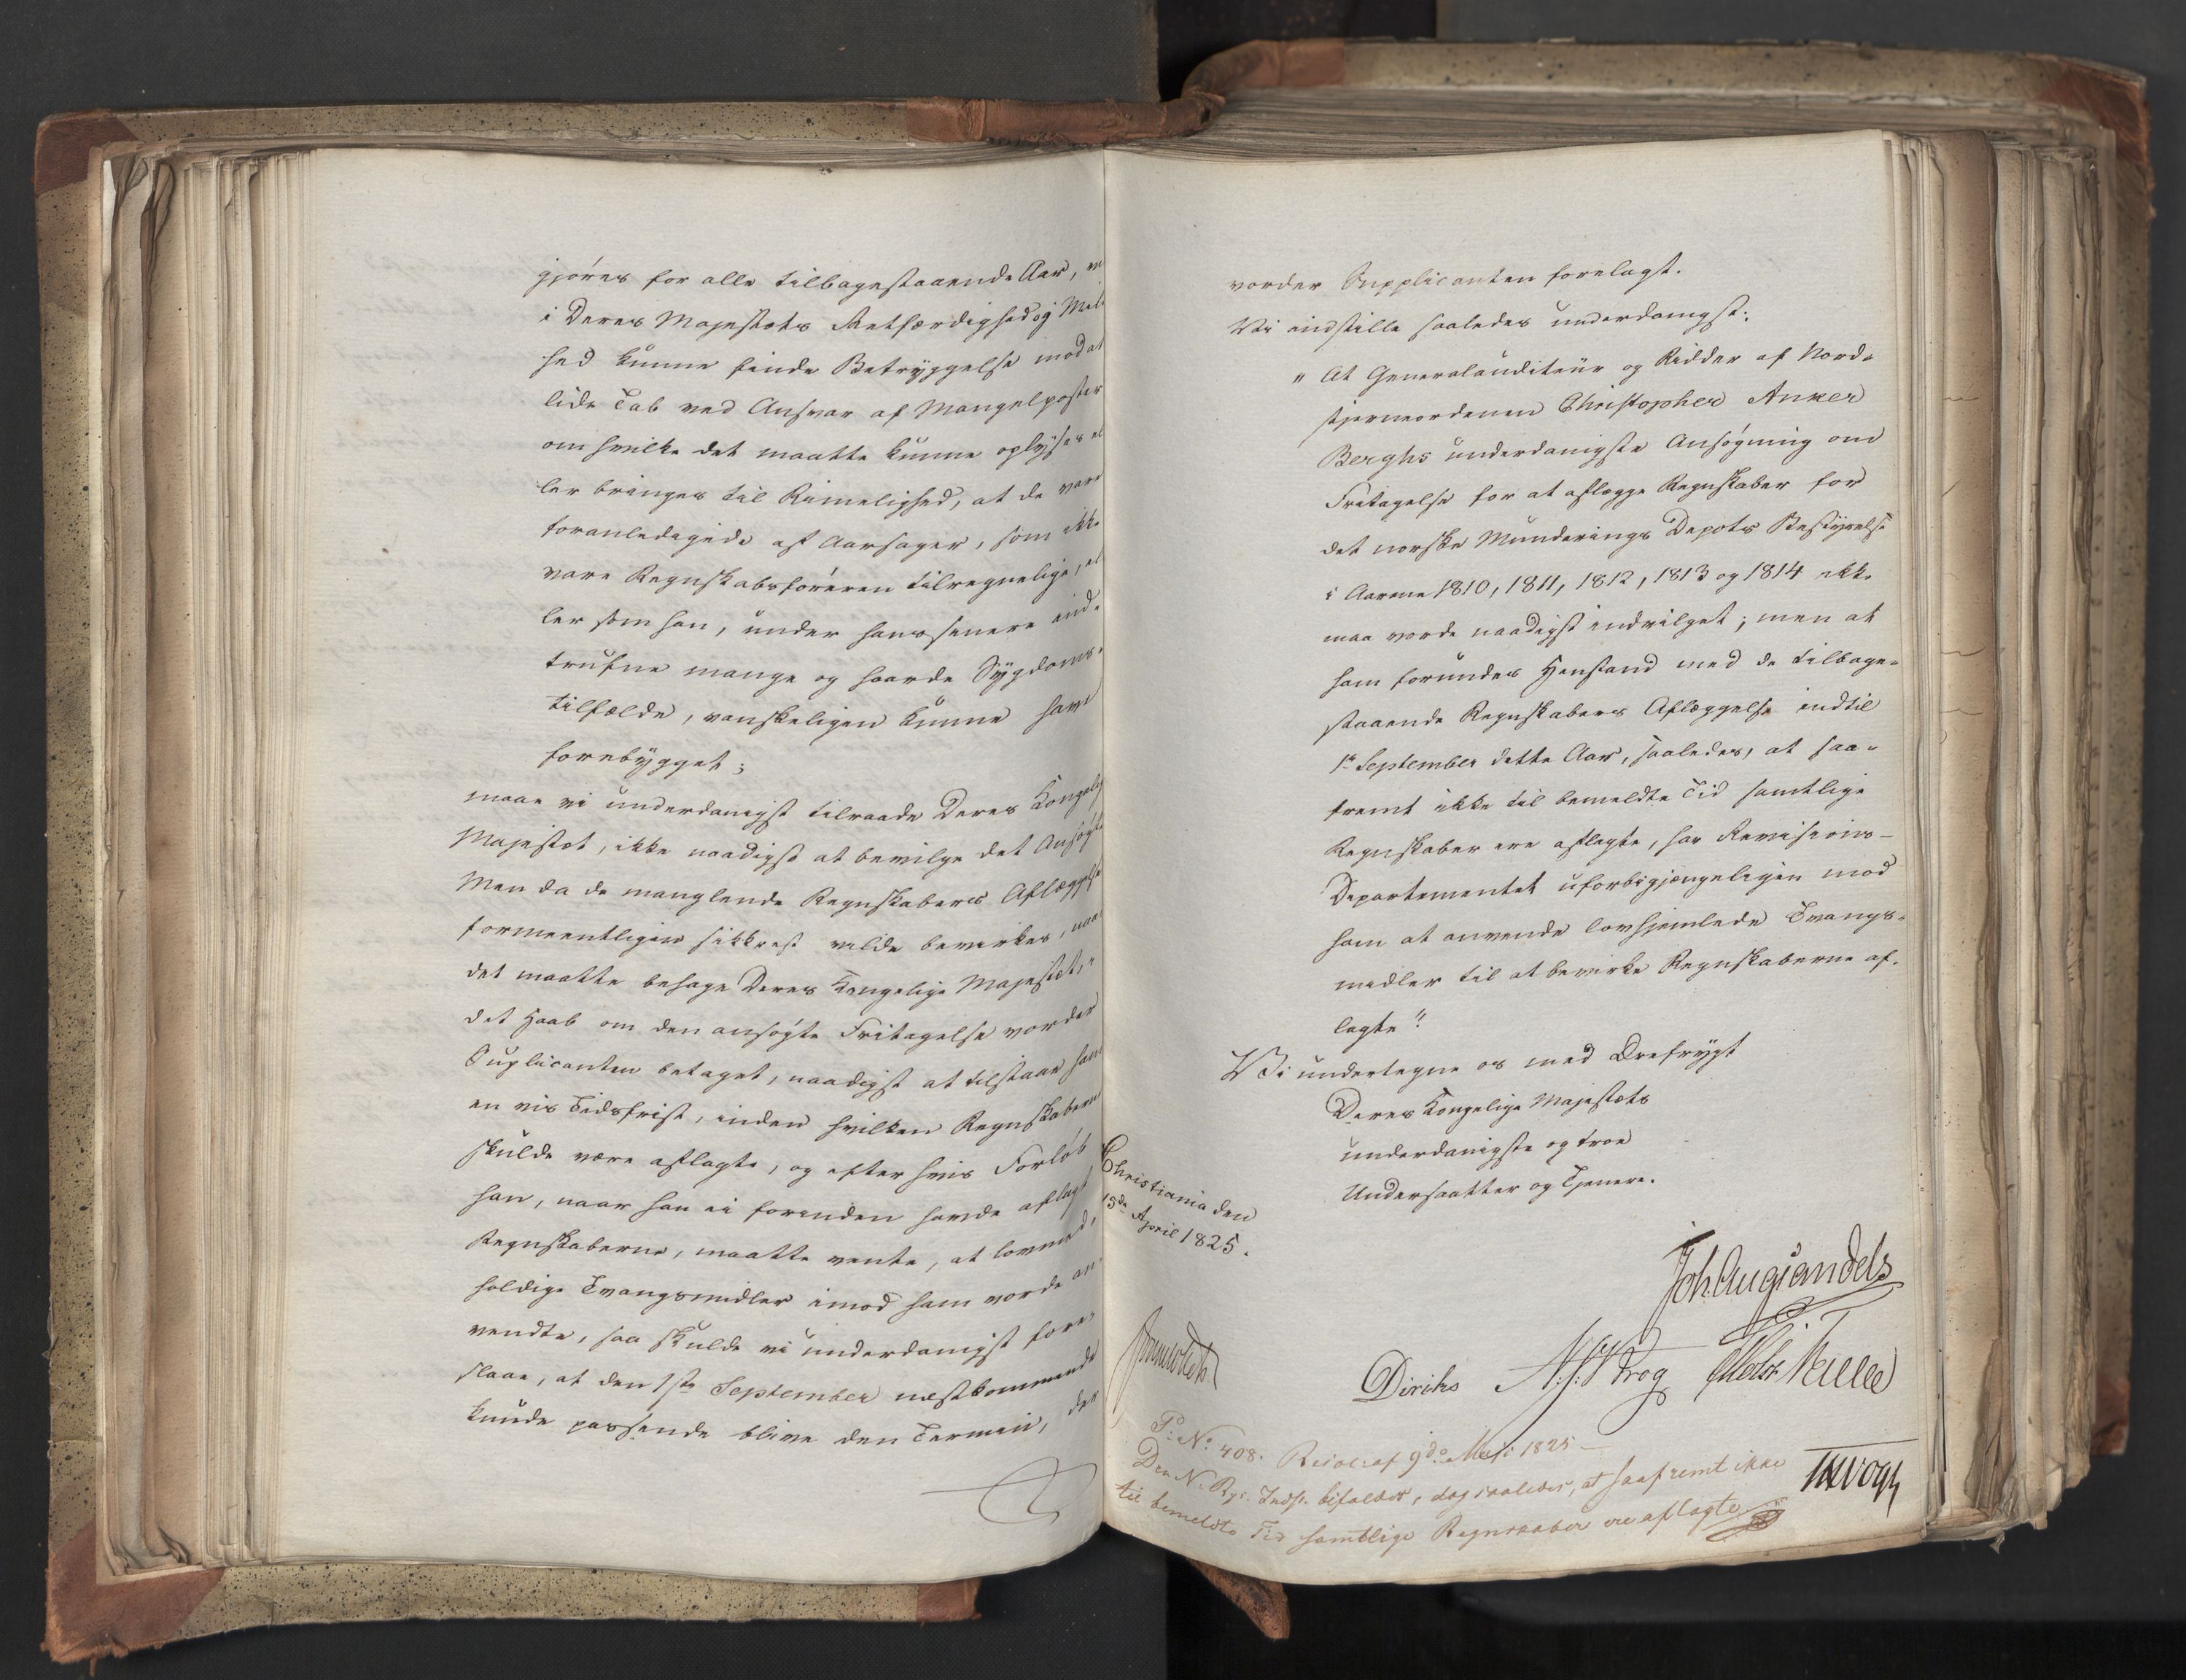 gjøres for alle tilbagestaaende Aar,
i Deres Majestæts Retfærdighed og Mild-
hed kunne finde Betryggelse mod at
lide Tab ved Ansvar af Mangelposter
om hvilke det maatte kunne oplyses el-
ler bringes til Rimelighed, at de vare
foranledigede af Aarsager, som ikke
vare Regnskabsføreren tilregnelige, el-
ler som han, under hans senere ind-
trufne mange og haarde Sygdoms-
tilfælde, vanskeligen kunne have
forebygget;
maae vi underdanigst tilraade Deres Kongelige
Majestæt, ikke naadigst at bevilge det Ansøgte
Men da de manglende Regnskabers Aflæggelse
formeentligen sikkrest vilde bevirkes, naar
det maatte behage Deres Kongelige Majestæt,
det Haab om den ansøgte Fritagelse vorder
Suplicanten betaget, naadigst at tilstaae ham
en vis Tidsfrist, inden hvilken Regnskaberne
skulde være aflagte, og efter hvis Forløb
han, naar han ei forinden havde aflagt
Regnskaberne, maatte vente, at lovmed-
holdige Tvangsmidler imod ham vorde an-
vendte, saa skulde vi underdanigst fore-
slaae, at den 1ste September næstkommende
kunde passende blive den Termin, der
vorder Supplicanten forelagt.
Vi indstille saaledes underdanigst:
" At Generalauditeur og Ridder af Nord-
stjerneordenen Christopher Anker
Berghs underdanigste Ansøgning om
Fritagelse for at aflægge Regnskaber for
det norske Munderings Depots Bestyrelse
i Aarene 1810, 1811, 1812, 1813 og 1814 ikke
maa vorde naadigst indvilget; men at
ham forundes Henstand med de tilbage-
staaende Regnskabers Aflæggelse indtil
1ste September dette Aar, saaledes, at saa-
fremt ikke til bemeldte Tid samtlige
Regnskaber ere aflagte, har Revisions-
Departementet uforbigjængeligen mod
ham at anvende lovhjemlede Tvangs-
midler til at bevirke Regnskaberne af-
lagte".
Vi undertegne os med Ærefrygt
Deres Kongelige Majestæts
underdanigste og troe
Undersaatter og Tjenere.
Christiania den
15de April 1825.
Joh. Aug. Sandels
Diriks Krog
P: No: 408. Resol: af 9de Maji 1825
Den N. Rgs. Indst. bifaldes, dog saaledes, at saafremt ikke
til bemeldte Tid samtlige Regnskaber ere aflagte
Vogt